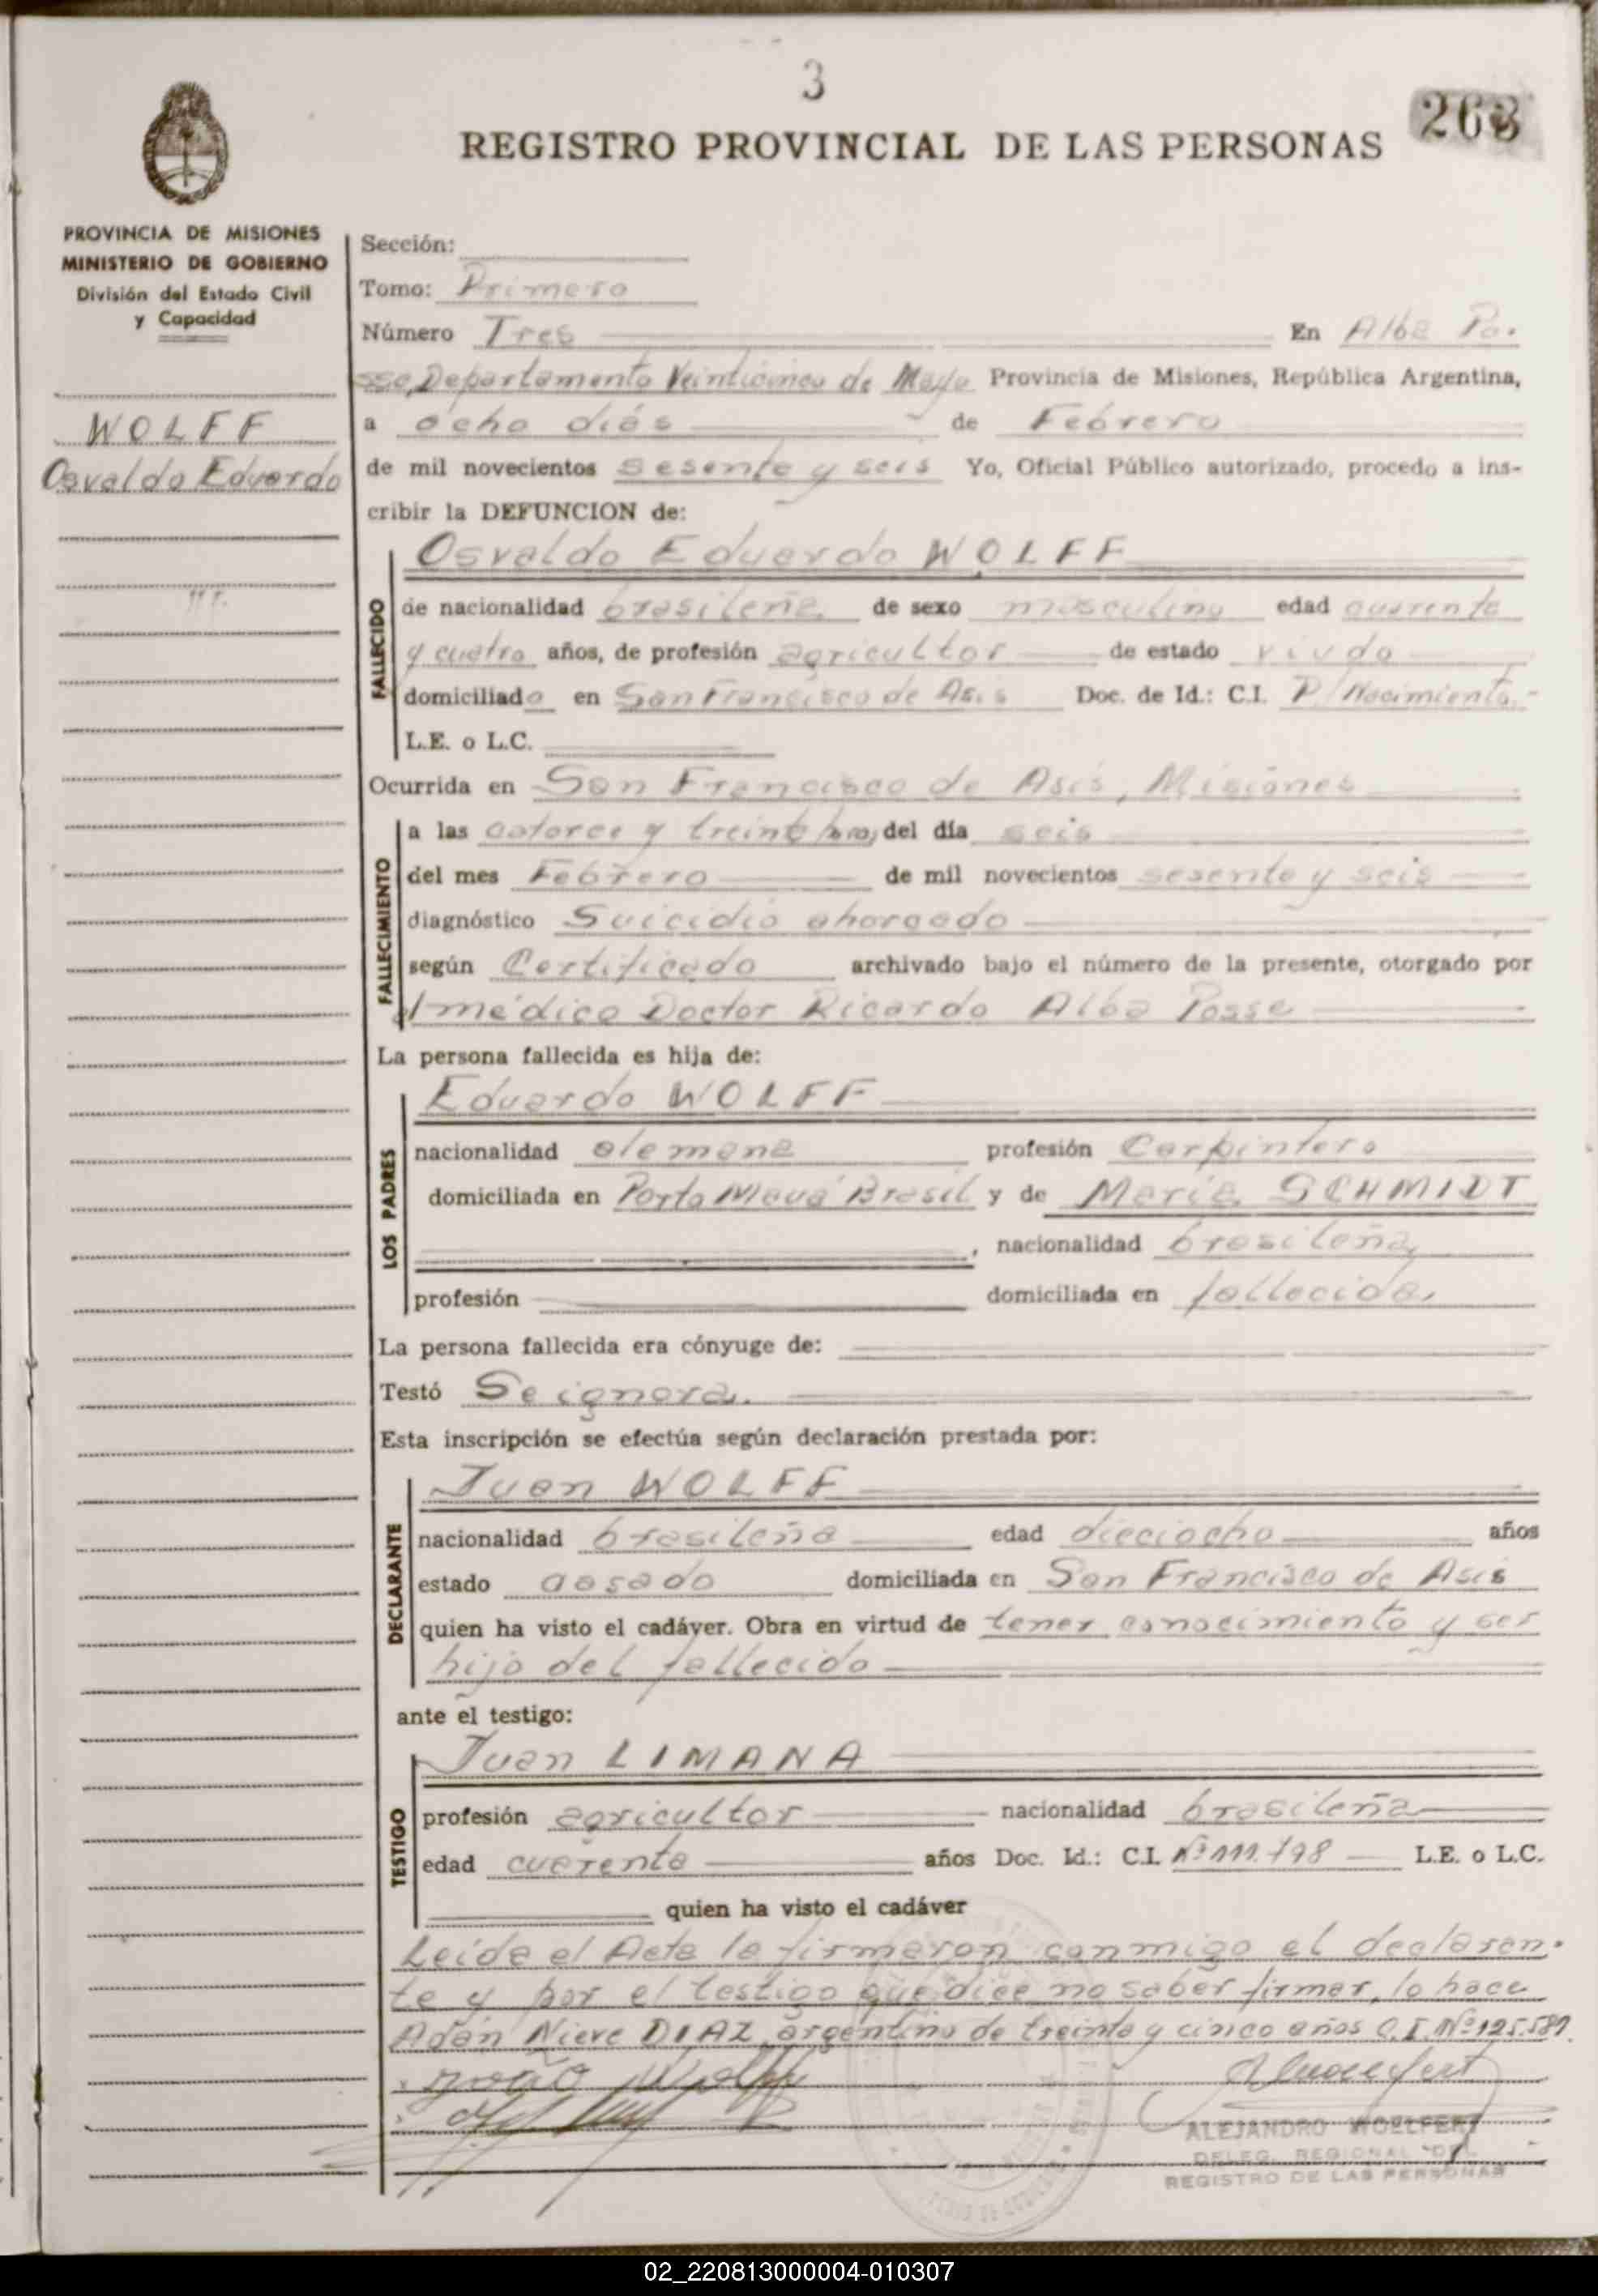 3
263
REGISTRO PROVINCIAL DE LAS PERSONAS
PROVINCIA DE MISIONES
MINISTERIO DE GOBIERNO
División del Estado Civil
y Capacidad
WOLFF
Osvaldo Eduardo
Sección:
Tomo: Primero
Número Tres En Alba Po.
sse, Departamento Veinticinco de Mayo Provincia de Misiones, República Argentina,
a ocho días de Febrero
de mil novecientos sesenta y seis Yo, Oficial Público autorizado, procedo a ins-
cribir la DEFUNCION de:
Osvaldo Eduardo WOLFF
FALLECIDO
de nacionalidad brasileña de sexo masculino edad cuarenta
y cuatro años, de profesión agricultor de estado viudo
domiciliado en San Francisco de Asis Doc. de Id.: C.I. P/Nacimiento.-
L.E. o L.C.
Ocurrida en San Francisco de Asis, Misiones
FALLECIMIENTO
a las catorce y treinta horas del día seis
del mes Febrero de mil novecientos sesenta y seis
diagnóstico Suicidio ahorcado
según Certificado archivado bajo el número de la presente, otorgado por
el médico Doctor Ricardo Alba Posse
La persona fallecida es hija de:
LOS PADRES
Eduardo WOLFF
nacionalidad alemana profesión Carpintero
domiciliada en Porto Mauá Brasil y de María SCHMIDT
, nacionalidad brasileña,
profesión domiciliada en fallecida,
La persona fallecida era cónyuge de:
Testó Se ignora.
Esta inscripción se efectúa según declaración prestada por:
DECLARANTE
Juan WOLFF
nacionalidad brasileña edad dieciocho años
estado casado domiciliada en San Francisco de Asis
quien ha visto el cadáver. Obra en virtud de tener conocimiento y ser
hijo del fallecido
ante el testigo:
TESTIGO
Juan LIMANA
profesión agricultor nacionalidad brasileña
edad cuarenta años Doc. Id.: C.I. Nº 111.798 L.E. o L.C.
quien ha visto el cadáver
Leída el Acta la firmaron conmigo el declaran.
te y por el testigo que dice no saber firmar, lo hace
Adán Nieve DIAZ, argentino de treinta y cinco años C.I. Nº 125.581.
João Wolff
ALEJANDRO WOELFERT
DELEG. REGIONAL DEL
REGISTRO DE LAS PERSONAS
02_220813000004-010307